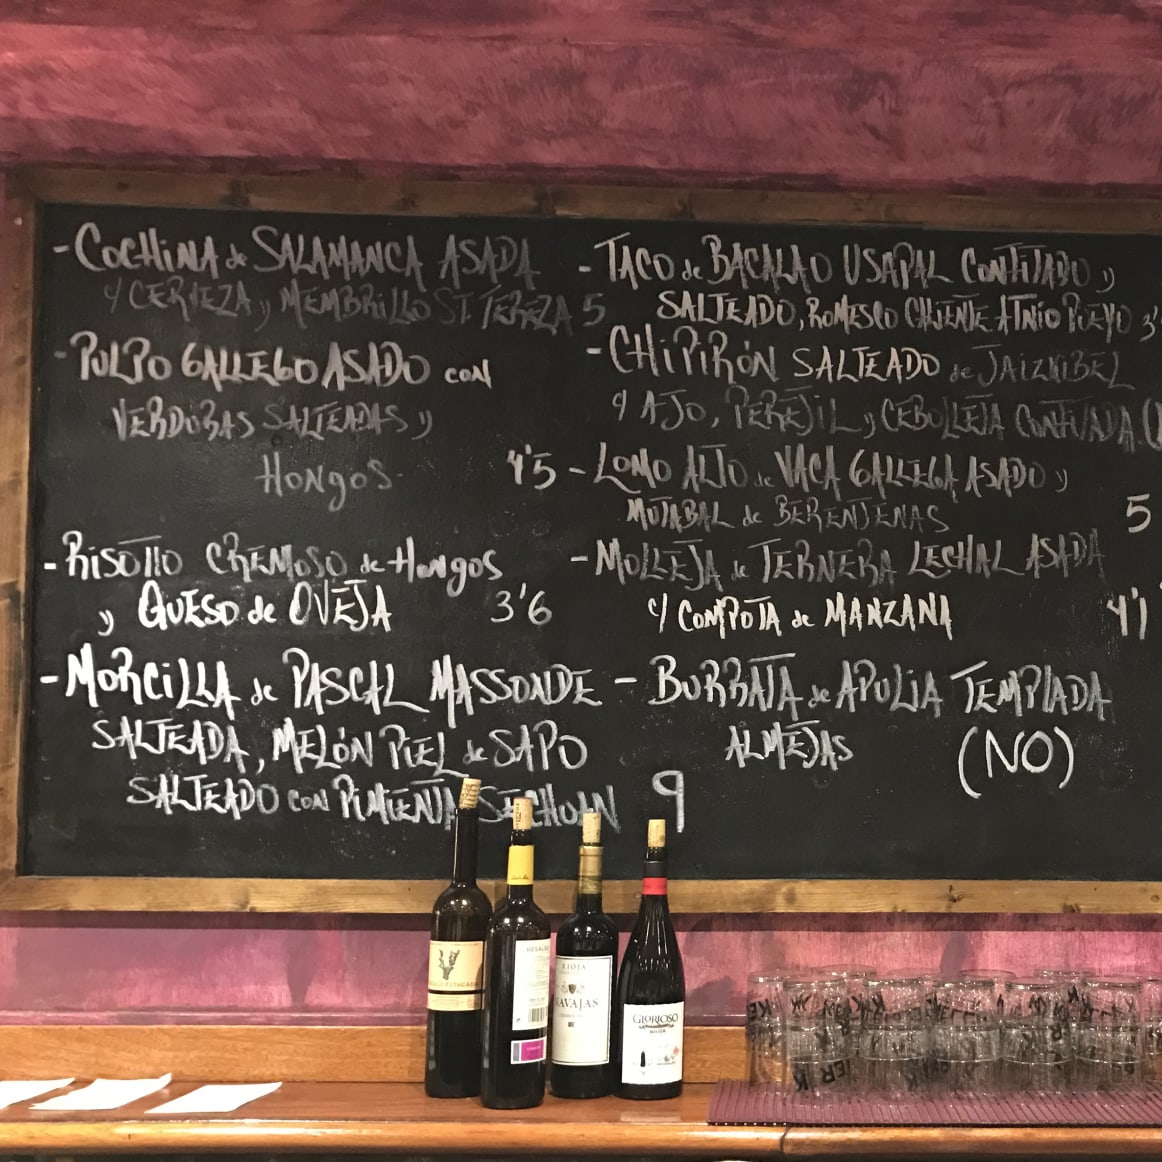 - COCHINA de SALAMANCA ASADA
Y CEREZA y MEMBRILLO ST. TEREZA 5
- PULPO GALLEGO ASADO con
VERDURAS SALTEADAS y
HONGOS 4'5
- RISOTTO CREMOSO de HONGOS
y QUESO de OVEJA 3'6
- MORCILLA de PASCAL MASSONDE
SALTEADA, MELÓN PIEL de SAPO
SALTEADO con PIMIENTA SECHUAN 9
- TACO de BACALAO USAPAL CONFITADO y
SALTEADO, ROMESCO CALIENTE ATNIO PUEYO 3'
- CHIPIRÓN SALTEADO de JAIZKIBEL
Y AJO, PEREJIL y CEBOLLETA CONFITADA (
- LOMO ALTO de VACA GALLEGA ASADO y
MUTABAL de BERENJENAS 5
- MOLLEJA de TERNERA LECHAL ASADA
Y COMPOTA de MANZANA 4'1
- BURRATA de APULIA TEMPLADA
ALMEJAS (NO)
RIOJA
NAVAJAS
GLORIOSO
RIOJA